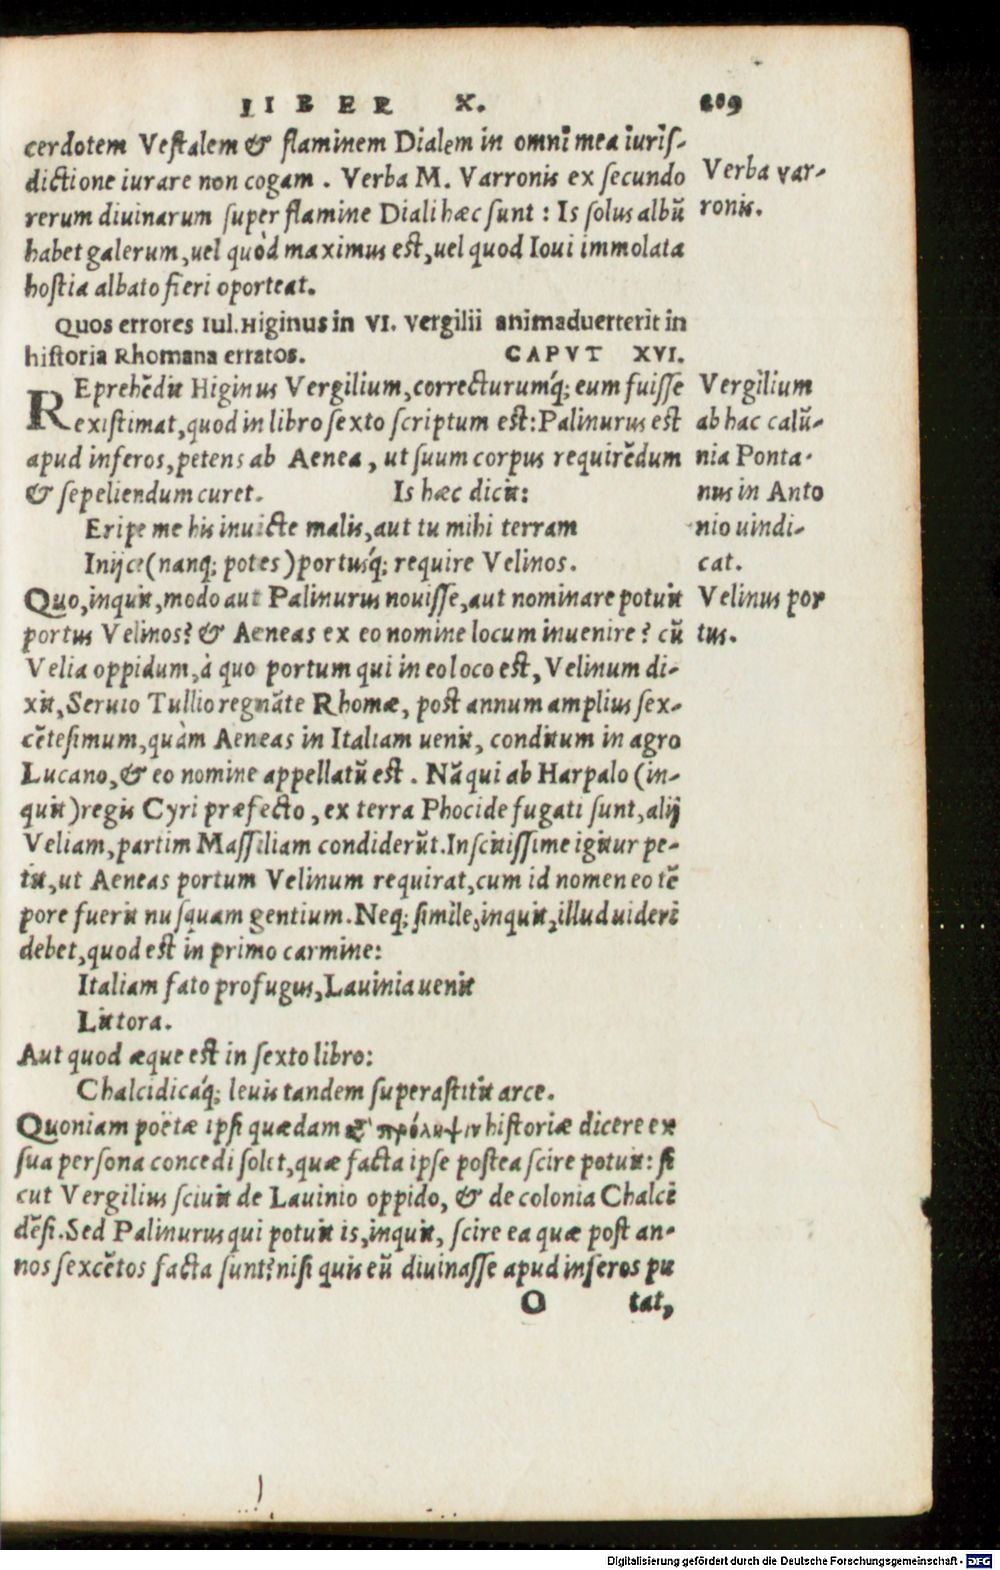 LIBER X. 209
cerdotem Vestalem & flaminem Dialem in omni mea iuris-
dictione iurare non cogam. Verba M. Varronis ex secundo
rerum diuinarum super flamine Diali hæc sunt: Is solus albũ
habet galerum, uel quòd maximus est, uel quod Ioui immolata
hostia albato fieri oporteat.
Verba var-
ronis.
Quos errores Iul. Higinus in VI. Vergilii animaduerterit in
historia Rhomana erratos. CAPVT XVI.
REprehẽdit Higinus Vergilium, correcturumq́; eum fuisse
existimat, quod in libro sexto scriptum est: Palinurus est
apud inferos, petens ab Aenea, ut suum corpus requirẽdum
& sepeliendum curet. Is hæc dicit:
Eripe me his inuicte malis, aut tu mihi terram
Inijce (nanq; potes) portusq́; require Velinos.
Vergilium
ab hac calũ-
nia Ponta-
nus in Anto
nio uindi-
cat.
Quo, inquit, modo aut Palinurus nouisse, aut nominare potuit
portus Velinos? & Aeneas ex eo nomine locum inuenire? cũ
Velia oppidum, à quo portum qui in eo loco est, Velinum di-
xit, Seruio Tullio regnãte Rhomæ, post annum amplius sex-
cẽtesimum, quàm Aeneas in Italiam uenit, conditum in agro
Lucano, & eo nomine appellatũ est. Nã qui ab Harpalo (in-
quit) regis Cyri præfecto, ex terra Phocide fugati sunt, alij
Veliam, partim Massiliam condiderũt. Inscitissime igitur pe-
tit, ut Aeneas portum Velinum requirat, cum id nomen eo tẽ
pore fuerit nusquam gentium. Neq; simile, inquit, illud uideri
debet, quod est in primo carmine:
Velinus por
tus.
Italiam fato profugus, Lauinia uenit
Littora.
Aut quod æque est in sexto libro:
Chalcidicaq́; leuis tandem superastitit arce.
Quoniam poëtæ ipsi quædam κτ̀ πρόληψιν historiæ dicere ex
sua persona concedi solet, quæ facta ipse postea scire potuit: si
cut Vergilius sciuit de Lauinio oppido, & de colonia Chalci
dẽsi. Sed Palinurus qui potuit is, inquit, scire ea quæ post an-
nos sexcẽtos facta sunt? nisi quis eũ diuinasse apud inferos pu
O tat,
Digitalisierung gefördert durch die Deutsche Forschungsgemeinschaft - DFG